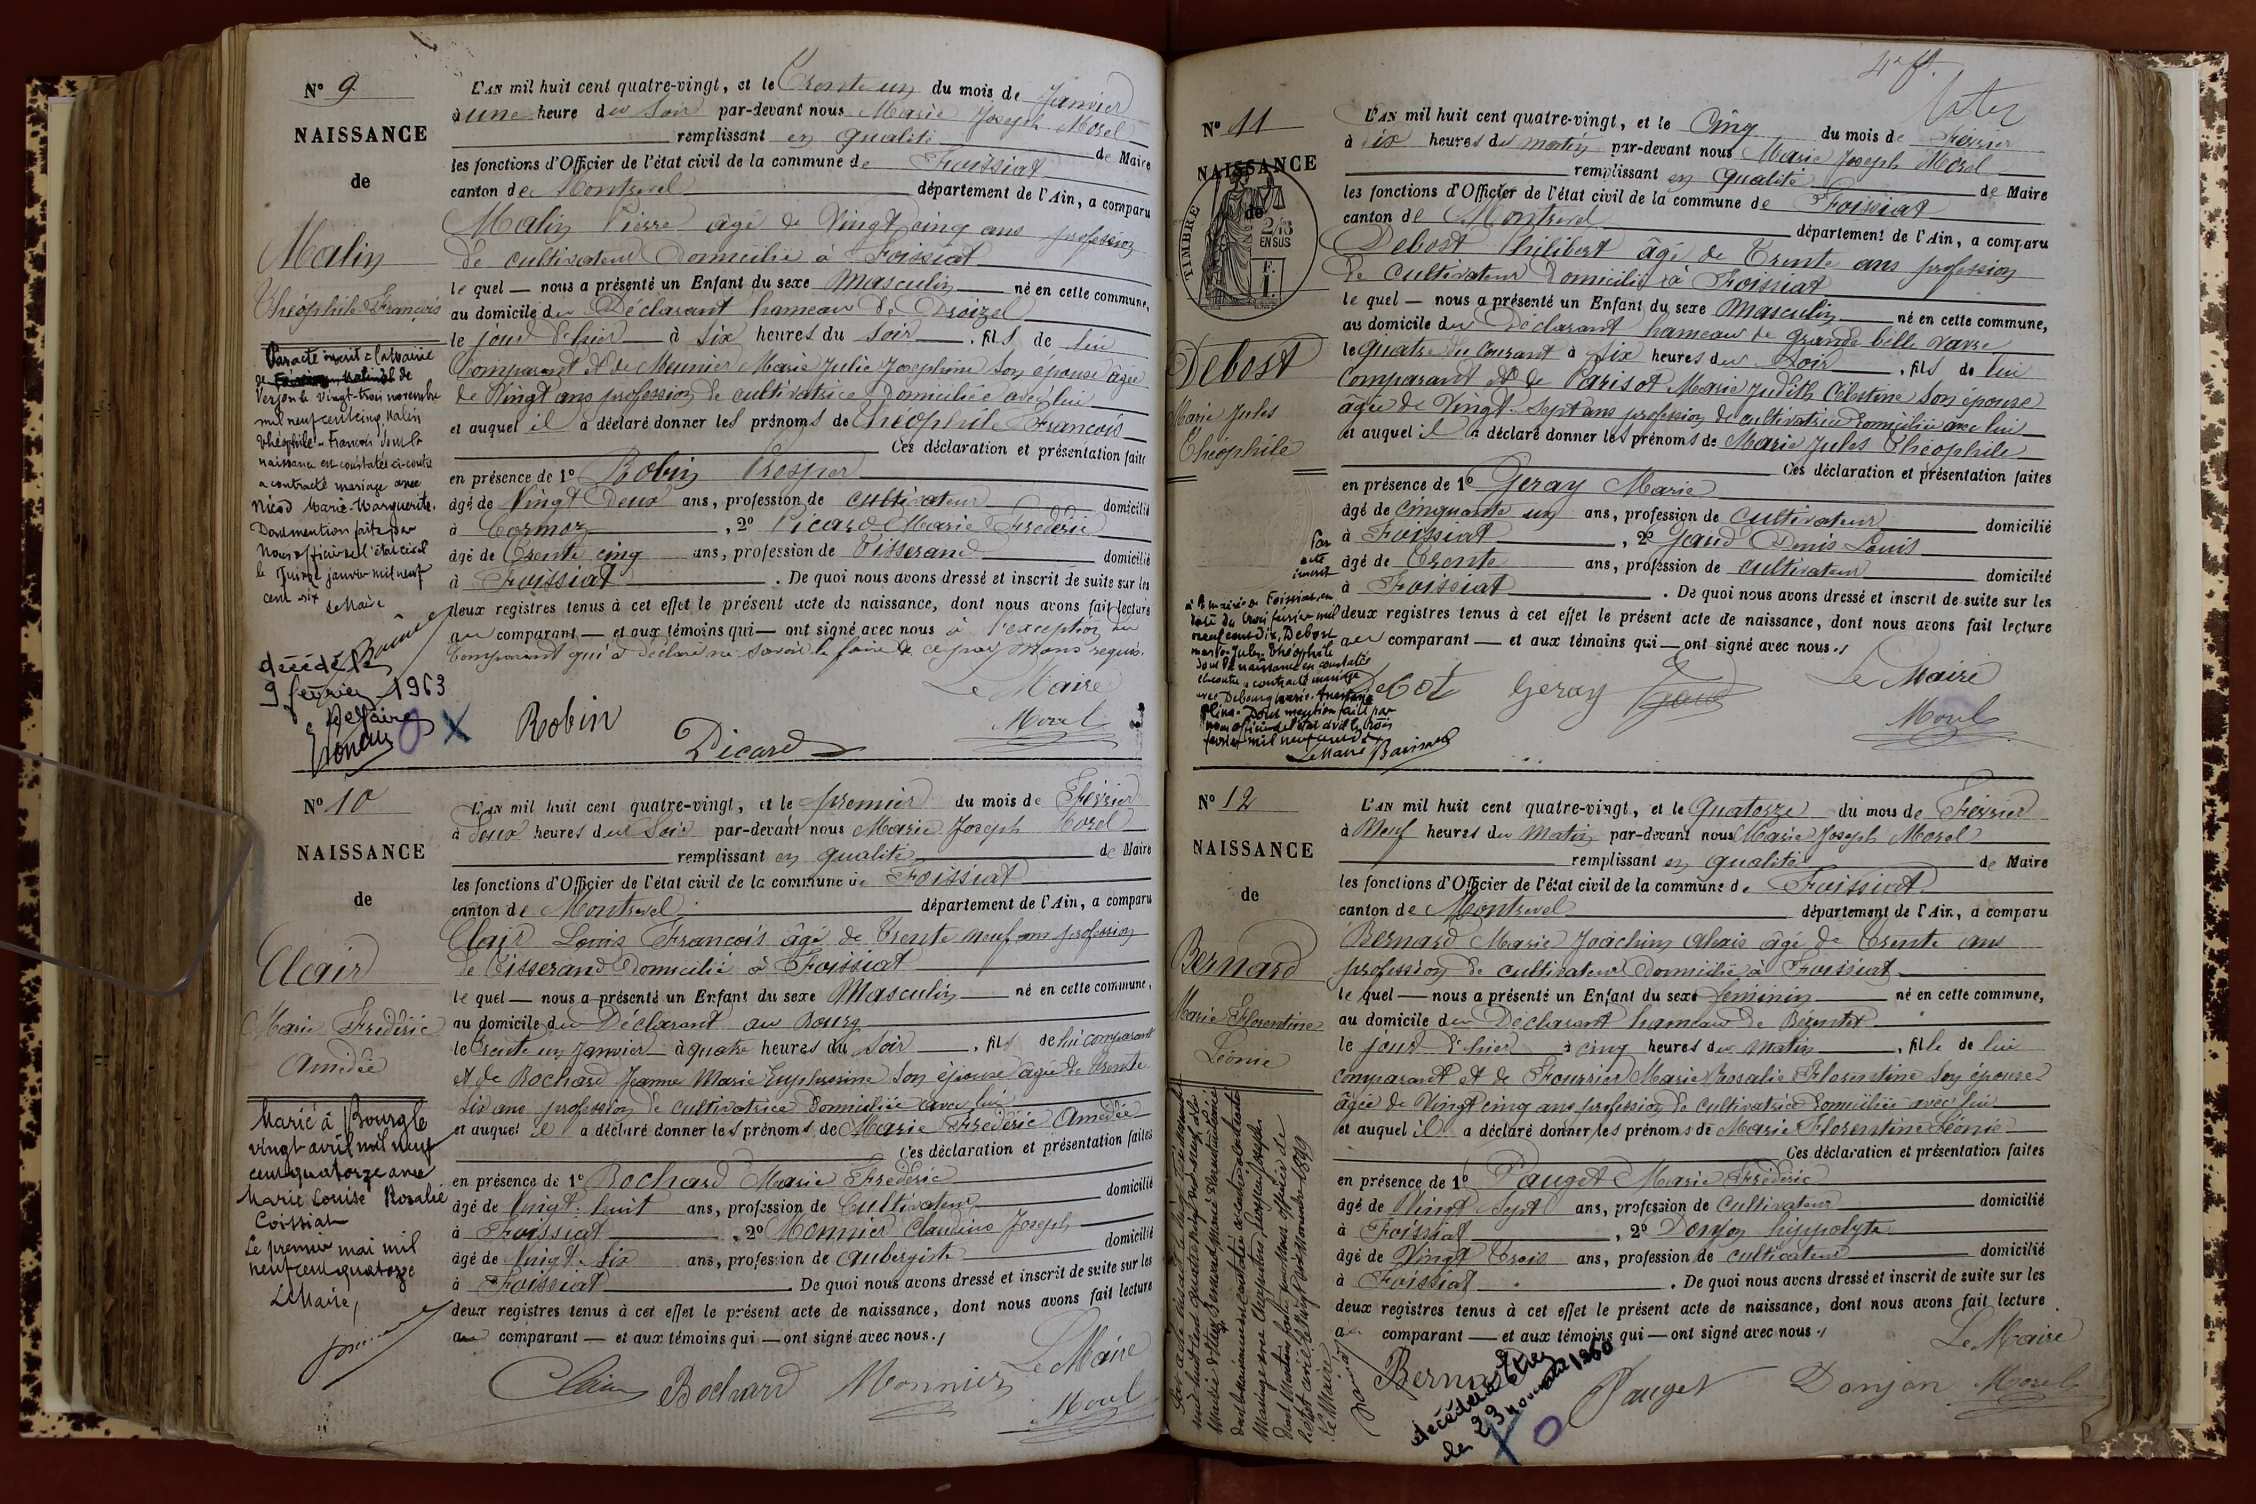 N° 9
NAISSANCE
de
Malin
Théophile François
L'AN mil huit cent quatre-vingt, et le Trente un du mois de Janvier
à une heure du Soir par-devant nous Marie Joseph Morel
remplissant en qualité de Maire
les fonctions d'Officier de l'état civil de la commune de Foissiat
canton de Montrevel département de l'Ain, a comparu
Malin Pierre âgé de Vingt cinq ans profession
de cultivateur Domicilié à Foissiat
le quel — nous a présenté un Enfant du sexe Masculin né en cette commune,
au domicile du Déclarant hameau de Droizel
le jour d'hier à six heures du soir, fils de lui
Comparant et de Meunier Marie Julie Josephine son épouse âgée
de Vingt ans profession de cultivatrice Domiciliée avec lui
et auquel il a déclaré donner les prénoms de Théophile François
Ces déclaration et présentation faite
en présence de 1° Robin Prosper
âgé de Vingt Deux ans, profession de cultivateur domicilié
à Cormoz, 2° Picard Marie Frédéric
âgé de Trente cinq ans, profession de Tisserand domicilié
à Foissiat. De quoi nous avons dressé et inscrit de suite sur les
deux registres tenus à cet effet le présent acte de naissance, dont nous avons fait lecture
au comparant — et aux témoins qui — ont signé avec nous à l'exception du
Comparant qui a déclaré ne savoir le faire de ce par Nous requis.
Le Maire
Robin Picard Morel
Par acte inscrit à la mairie
de
Verjon le vingt-trois novembre
mil neuf cent cinq, Malin
Théophile-François dont la
naissance est constatée ci-contre
a contracté mariage avec
Nicod Marie-Marguerite.
Dont mention faite par
Nous officier de l'état civil
le Quinze janvier mil neuf
cent six
Le Maire
décédé le
9 février 1963
Le Maire
N° 10
NAISSANCE
de
Clair
Marie Frédéric
Amédée
L'AN mil huit cent quatre-vingt, et le premier du mois de Février
à Deux heures du Soir par-devant nous Marie Joseph Morel
remplissant en qualité de Maire
les fonctions d'Officier de l'état civil de la commune de Foissiat
canton de Montrevel département de l'Ain, a comparu
Clair Louis François âgé de Trente neuf ans profession
de Tisserand Domicilié à Foissiat
le quel — nous a présenté un Enfant du sexe Masculin né en cette commune,
au domicile du Déclarant au Bourg
le Trente un Janvier à quatre heures du Soir, fils de lui comparant
et de Bochard Jeanne Marie Euphrosine son épouse âgée de Trente
six ans profession de cultivatrice Domiciliée avec lui
et auquel il a déclaré donner les prénoms de Marie Frédéric Amédée
Ces déclaration et présentation faites
en présence de 1° Bochard Marie Frédéric
âgé de Vingt-huit ans, profession de Cultivateur domicilié
à Foissiat, 2° Monnier Claudius Joseph
âgé de Vingt-six ans, profession de aubergiste domicilié
à Foissiat. De quoi nous avons dressé et inscrit de suite sur les
deux registres tenus à cet effet le présent acte de naissance, dont nous avons fait lecture
au comparant — et aux témoins qui — ont signé avec nous.
Le Maire
Clair Bochard Monnier Morel
Marié à Bourg le
vingt avril mil neuf
cent quatorze avec
Marie Louise Rosalie
Coissiat
Le premier mai mil
neuf cent quatorze
Le Maire,
N° 11
NAISSANCE
de
TIMBRE
2/10
EN SUS
F.
1.
Debost
Marie Jules
Théophile
L'AN mil huit cent quatre-vingt, et le Cinq du mois de Février
à six heures du matin par-devant nous Marie Joseph Morel
remplissant en qualité de Maire
les fonctions d'Officier de l'état civil de la commune de Foissiat
canton de Montrevel département de l'Ain, a comparu
Debost Philibert âgé de Trente ans profession
de Cultivateur Domicilié à Foissiat
le quel — nous a présenté un Enfant du sexe Masculin né en cette commune,
au domicile du Déclarant hameau de grande belle vavre
le Quatre du Courant à six heures du Soir, fils de lui
Comparant et de Parisot Marie Judith Célestine son épouse
âgée de Vingt-Sept ans profession de cultivatrice Domiciliée avec lui
et auquel il a déclaré donner les prénoms de Marie Jules Théophile
Ces déclaration et présentation faites
en présence de 1° Geray Marie
âgé de cinquante un ans, profession de Cultivateur domicilié
à Foissiat, 2° Jaud Denis Louis
âgé de Trente ans, profession de cultivateur domicilié
à Foissiat. De quoi nous avons dressé et inscrit de suite sur les
deux registres tenus à cet effet le présent acte de naissance, dont nous avons fait lecture
au comparant — et aux témoins qui — ont signé avec nous.
Le Maire
Debost Geray Jaud Morel
Par
acte
inscrit
à la mairie de Foissiat, en
date du trois février mil
neuf cent dix, Debost
Marie-Jules-Théophile
dont la naissance est constatée
ci-contre a contracté mariage
avec Debourg Marie-Anastasie
Dont mention faite par
nous officier de l'état civil le trois
février mil neuf cent dix
Le Maire
N° 12
NAISSANCE
de
Bernard
Marie Florentine
Léonie
L'AN mil huit cent quatre-vingt, et le Quatorze du mois de Février
à Neuf heures du Matin par-devant nous Marie Joseph Morel
remplissant en qualité de Maire
les fonctions d'Officier de l'état civil de la commune de Foissiat
canton de Montrevel département de l'Ain, a comparu
Bernard Marie Joachim Alexis âgé de Trente ans
profession de cultivateur Domicilié à Foissiat
le quel — nous a présenté un Enfant du sexe féminin né en cette commune,
au domicile du Déclarant hameau de Bézentet
le jour d'hier à cinq heures du Matin, fille de lui
comparant et de Fourrier Marie Rosalie Florentine son épouse
âgée de Vingt cinq ans profession de cultivatrice Domiciliée avec lui
et auquel il a déclaré donner les prénoms de Marie Florentine Léonie
Ces déclaration et présentation faites
en présence de 1° Pauget Marie Frédéric
âgé de Vingt Sept ans, profession de Cultivateur domicilié
à Foissiat, 2° Donjon hippolyte
âgé de Vingt Trois ans, profession de cultivateur domicilié
à Foissiat. De quoi nous avons dressé et inscrit de suite sur les
deux registres tenus à cet effet le présent acte de naissance, dont nous avons fait lecture
au comparant — et aux témoins qui — ont signé avec nous.
Le Maire
Bernard Pauget Donjon Morel
décédée à
le 23 novembre 1960